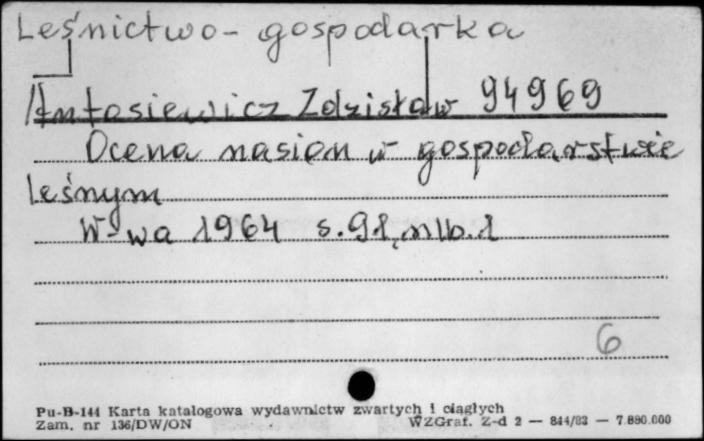 Leśnictwo - gospodarka
Antosiewicz Zdzisław 94969
Ocena nasion w gospodarstwie
leśnym
W-wa 1964 s. 91, nlb. 1
6
Pu-B-144 Karta katalogowa wydawnictw zwartych i ciągłych
Zam. nr 136/DW/ON WZGraf. Z-d 2 — 844/83 — 7.880.000